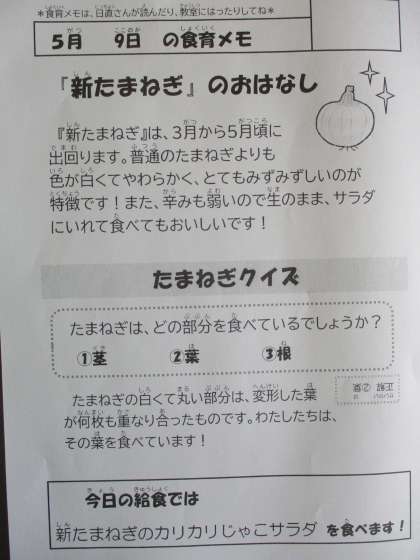 ＊食育メモは、日直さんが読んだり、教室にはったりしてね＊
5月 9日 の食育メモ
『新たまねぎ』のおはなし
『新たまねぎ』は、3月から5月頃に
出回ります。普通のたまねぎよりも
色が白くてやわらかく、とてもみずみずしいのが
特徴です！また、辛みも弱いので生のまま、サラダ
にいれて食べてもおいしいです！
たまねぎクイズ
たまねぎは、どの部分を食べているでしょうか？
①茎 ②葉 ③根
正解 ②葉
たまねぎの白くて丸い部分は、変形した葉
が何枚も重なり合ったものです。わたしたちは、
その葉を食べています！
今日の給食では
新たまねぎのカリカリじゃこサラダ を食べます！